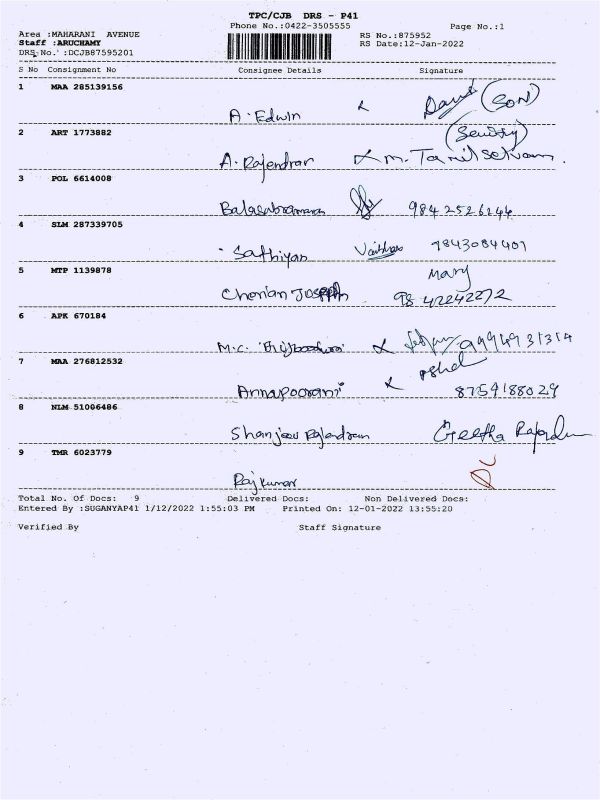 TPC/CJB DRS - P41
Phone No.:0422-3505555 Page No.:1
Area :MAHARANI AVENUE RS No.:875952
Staff :ARUCHAMY RS Date:12-Jan-2022
DRS No. :DCJB87595201
S No Consignment No Consignee Details Signature
1 MAA 285139156
A. Edwin (SON)
2 ART 1773882
A. Rajendran M. Tamilselvam.
3 POL 6614008
9842526246
4 SLM 287339705
Sathiyan 9843084401
5 MTP 1139878
Mary
Cherian Joseph 9842242272
6 APK 670184
M.C. 9994931314
7 MAA 276812532
Annapoorani 8754188029
8 NLM 51006486
Shanjeev Rajendran Geetha
9 TMR 6023779
Rajkumar
Total No. Of Docs: 9 Delivered Docs: Non Delivered Docs:
Entered By :SUGANYAP41 1/12/2022 1:55:03 PM Printed On: 12-01-2022 13:55:20
Verified By Staff Signature